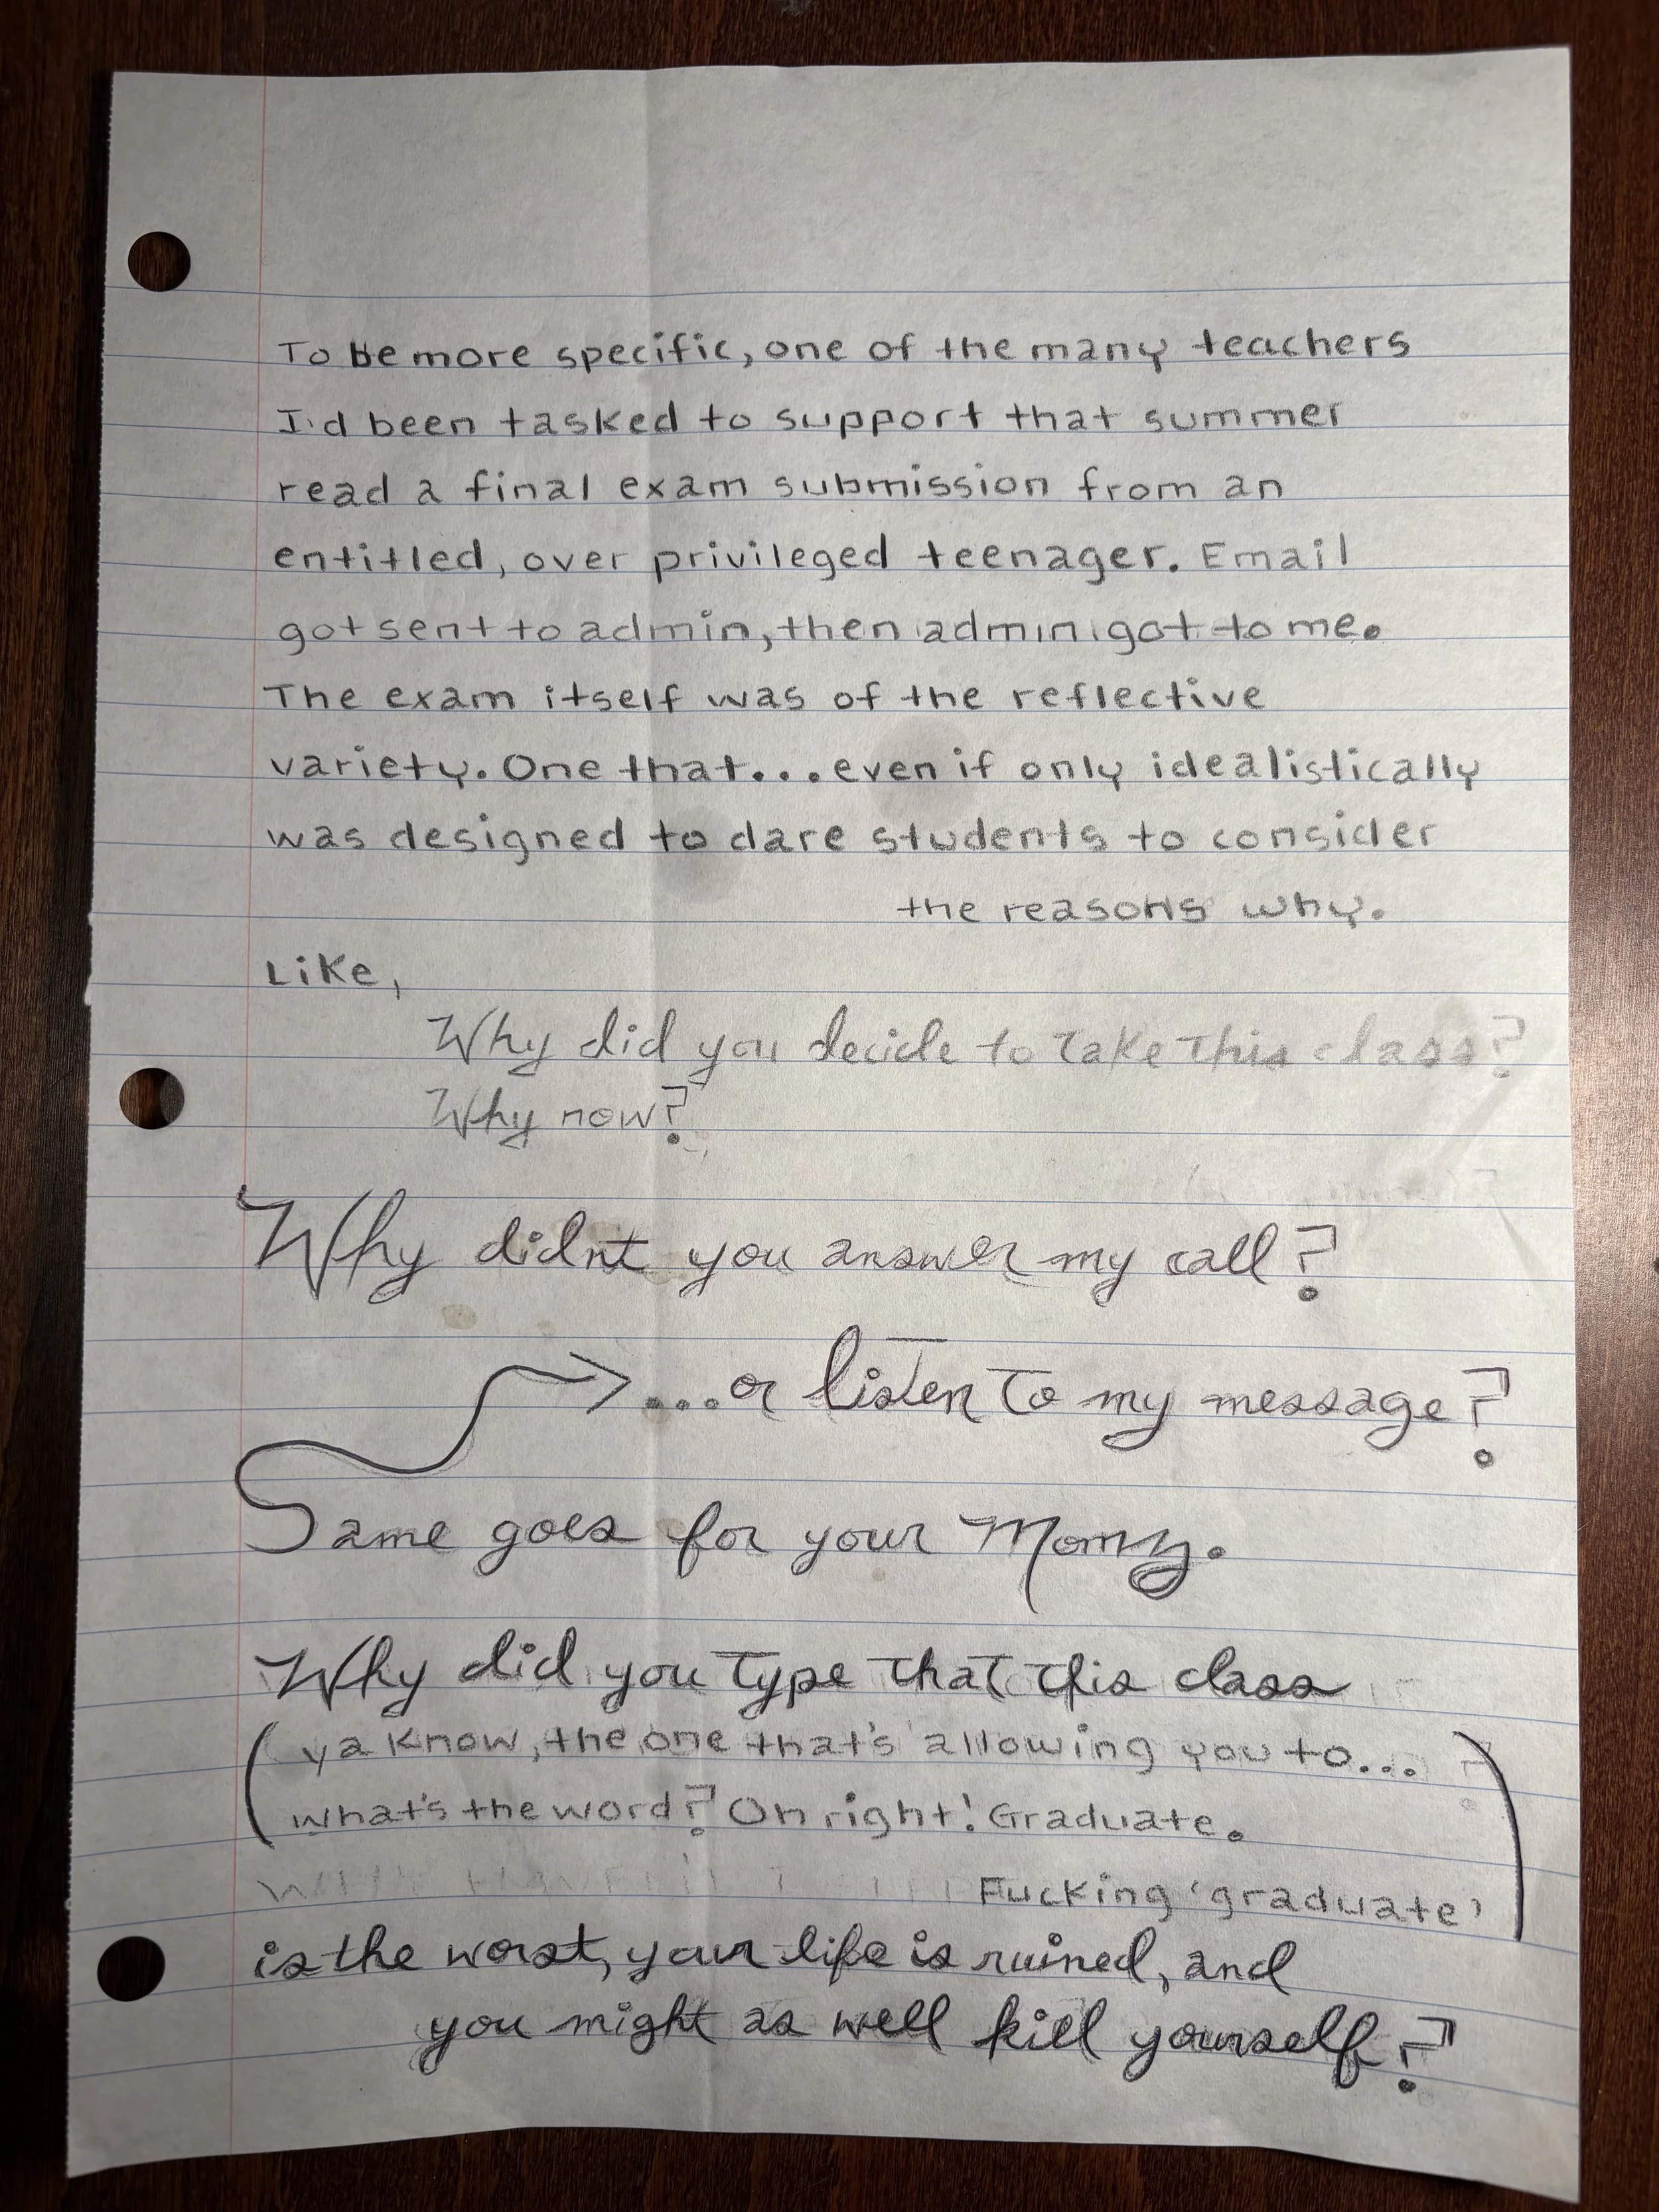 To be more specific, one of the many teachers
I'd been tasked to support that summer
read a final exam submission from an
entitled, over privileged teenager. Email
got sent to admin, then admin got to me.
The exam itself was of the reflective
variety. One that... even if only idealistically
was designed to dare students to consider
the reasons why.
Like,
Why did you decide to take this class?
Why now?
Why didn't you answer my call?
...or listen to my message?
Same goes for your Momzy.
Why did you type that this class
(ya know, the one that's allowing you to...
what's the word? Oh right! Graduate.
Fucking 'graduate')
is the worst, your life is ruined, and
you might as well kill yourself?